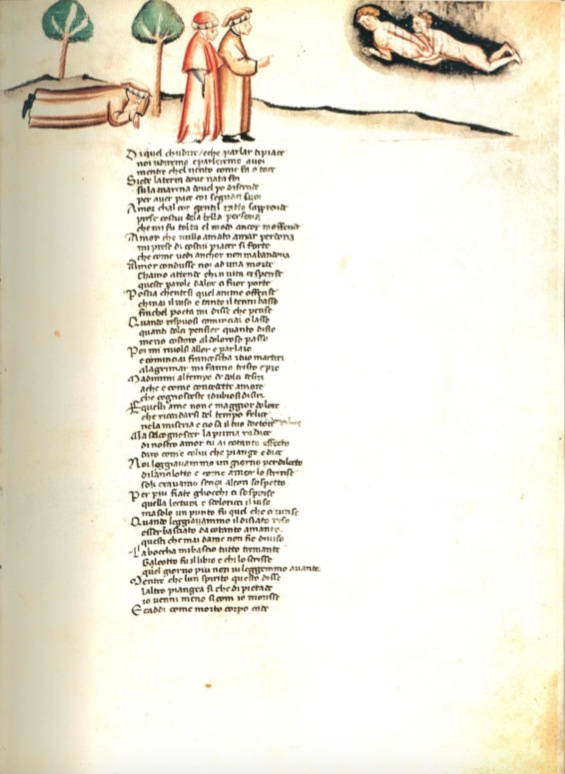 Di quel chudire / e che parlar ti piace
noi udiremo e parleremo a uoi
mentre chel uento come fa ci tace
Siede la terra doue nata fui
su la marina doue l po discende
per auer pace coi seguaci suoi
Amor chal cor gentil ratto sapprende
prese costui de la bella persona
che mi fu tolta el modo ancor moffende
Amor che nullo amato amar perdona
mi prese di costui piacer si forte
che come uedi anchor non mabandona
Amor condusse noi ad una morte
Chaino attende chin uita ci spense
queste parole da lor ci fuer porte
Poscia chentesi quel anime offense
chinai il uiso e tanto il tenni basso
finchel poeta mi disse che pense
Quando rispuosi cominciai o lasso
quanti dolci pensier quanto disio
meno costoro al doloroso passo
Poi mi riuolsi allor e parlaio
e cominciai francescha i tuoi martiri
a lagrimar mi fanno tristo e pio
Madimmi al tempo de dolci sospiri
a che e come concedette amore
che cognosceste i dubiosi disiri
E quelli a me non e maggior dolore
che ricordarsi del tempo felice
ne la miseria e cio sa il tuo dottore
Ma sa cognoscer la prima radice
di nostro amor tu ai cotanto affecto
diro come colui che piange e dice
Noi leggiauammo un giorno per diletto
di lancialotto e come amor lo strinse
soli erauamo senza alcun sospetto
Per piu fiate gli occhi ci sospinse
quella lectura e scolorocci il uiso
ma solo un punto fu quel che ci uinse
Quando leggiauammo il disiato riso
esser basciato da cotanto amante
questi che mai da me non fie diuiso
La boccha mi bascio tutto tremante
Galeotto fu il libro e chi lo scrisse
quel giorno piu non ui leggemmo auante
Mentre che lun spirito questo disse
laltro piangea si che di pietade
io uenni meno si com io morisse
E caddi come morto corpo cade